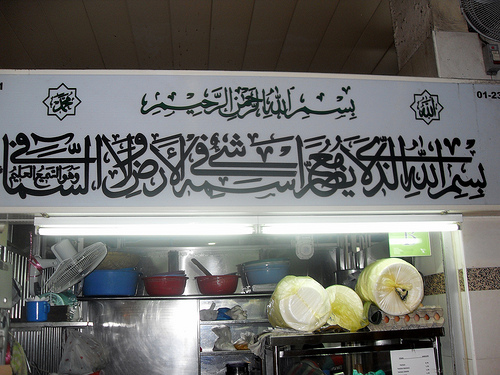 محمد
بسم الله الرحمن الرحيم
الله
01-23
بسم الله الذي لا يضر مع اسمه شئ في الأرض ولا في السماء وهو السميع العليم